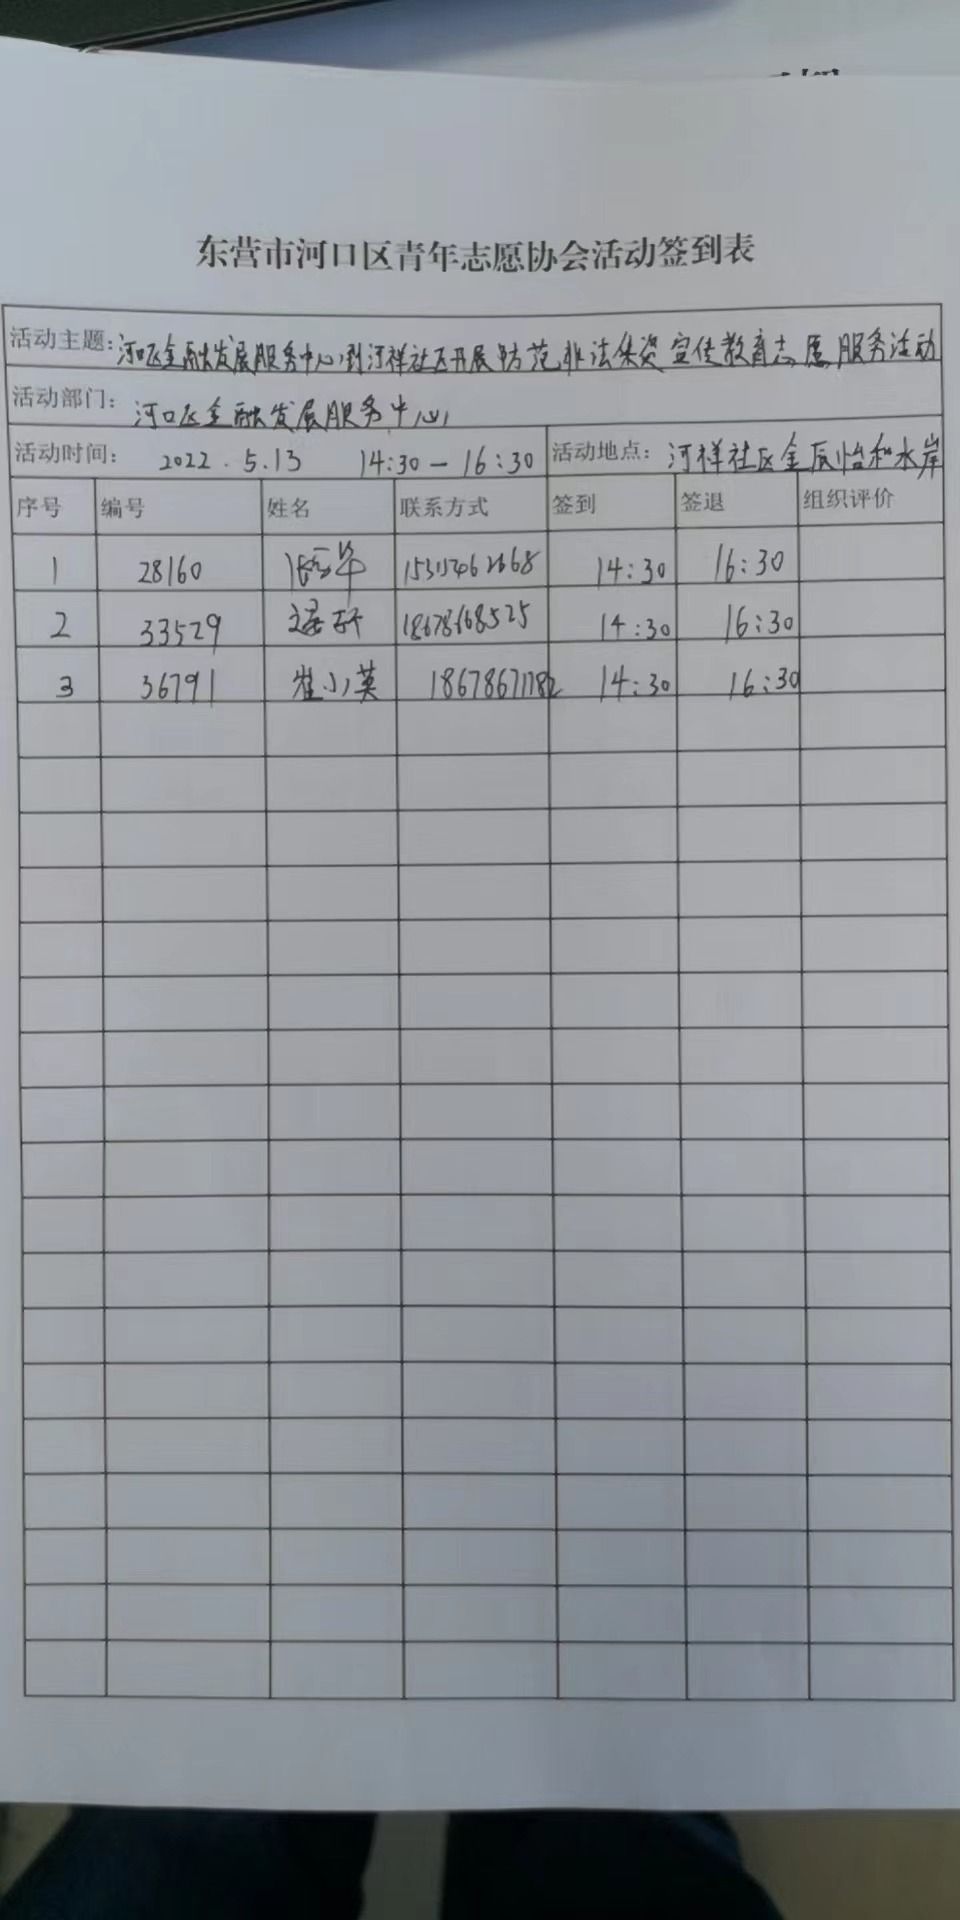 东营市河口区青年志愿协会活动签到表
活动主题:河口区金融发展服务中心到河祥社区开展防范非法集资宣传教育志愿服务活动
活动部门: 河口区金融发展服务中心
活动时间: 2022.5.13 14:30-16:30 活动地点: 河祥社区金辰怡和水岸
序号 编号 姓名 联系方式 签到 签退 组织评价
1 28160 14:30 16:30
2 33529 18678668525 14:30 16:30
3 36791 崔小英 18678671782 14:30 16:30